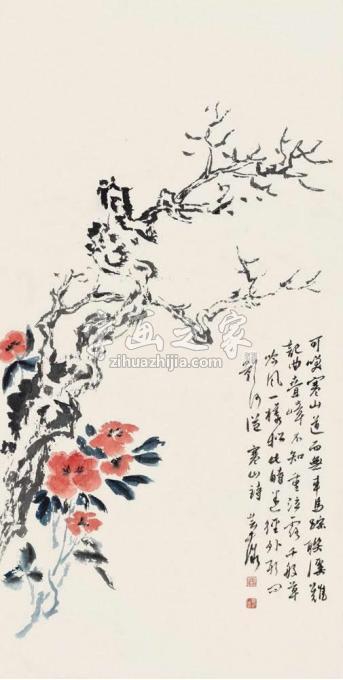 字画之家
zihuazhijia.com
可笑寒山道而無車馬踪聯溪難
記曲叠嶂不知重泣露千般草
吟風一樣松此時迷徑处形問
影何從 寒山詩